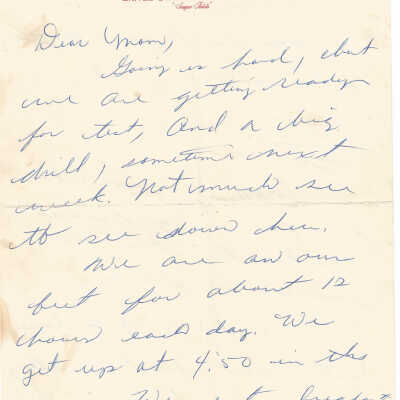 "Sugar Bits"
Dear Mom,
Going is hard, but
we are getting ready
for test, And a big
drill, sometime next
week. Not much see
to see down her.
We are on our
feet for about 12
hours each day. We
get up at 4:50 in the
We